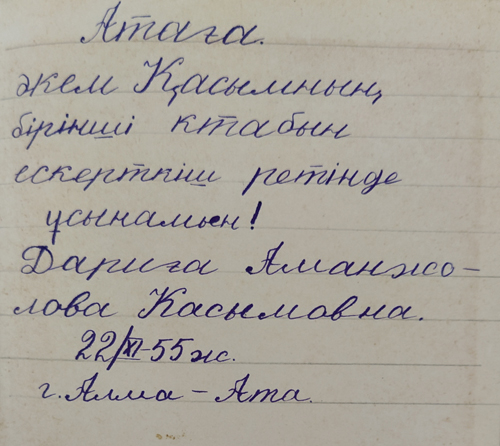 Атаға.
әкем Қасымның,
бірінші ктабын
ескерткіш ретінде
ұсынамын!
Дариға Аманжо-
лова Касымовна.
22/XI-55ж.
г. Алма-Ата.